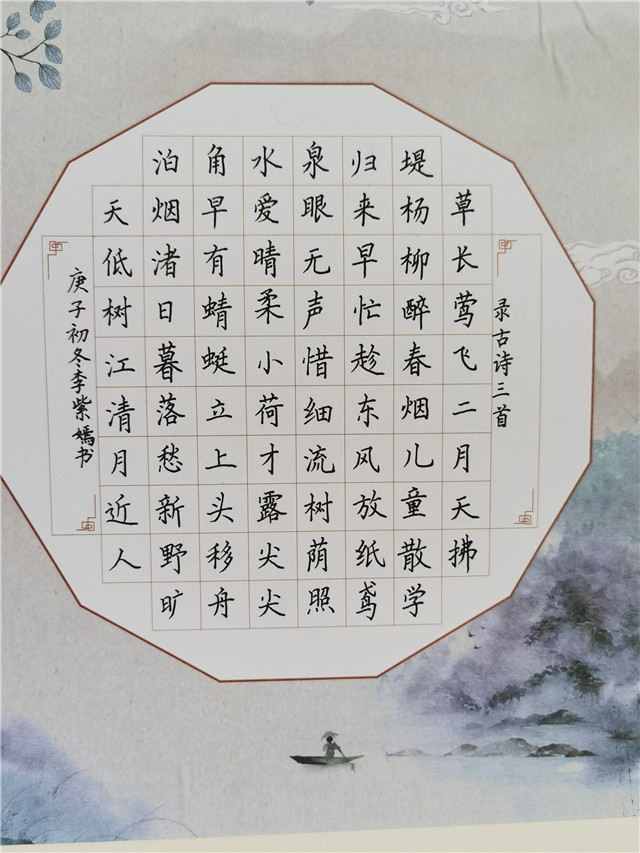 录古诗三首
草长莺飞二月天拂
堤杨柳醉春烟儿童散学
归来早忙趁东风放纸鸢
泉眼无声惜细流树荫照
水爱晴柔小荷才露尖尖
角早有蜻蜓立上头移舟
泊烟渚日暮落愁新野旷
天低树江清月近人
庚子初冬李紫嫣书